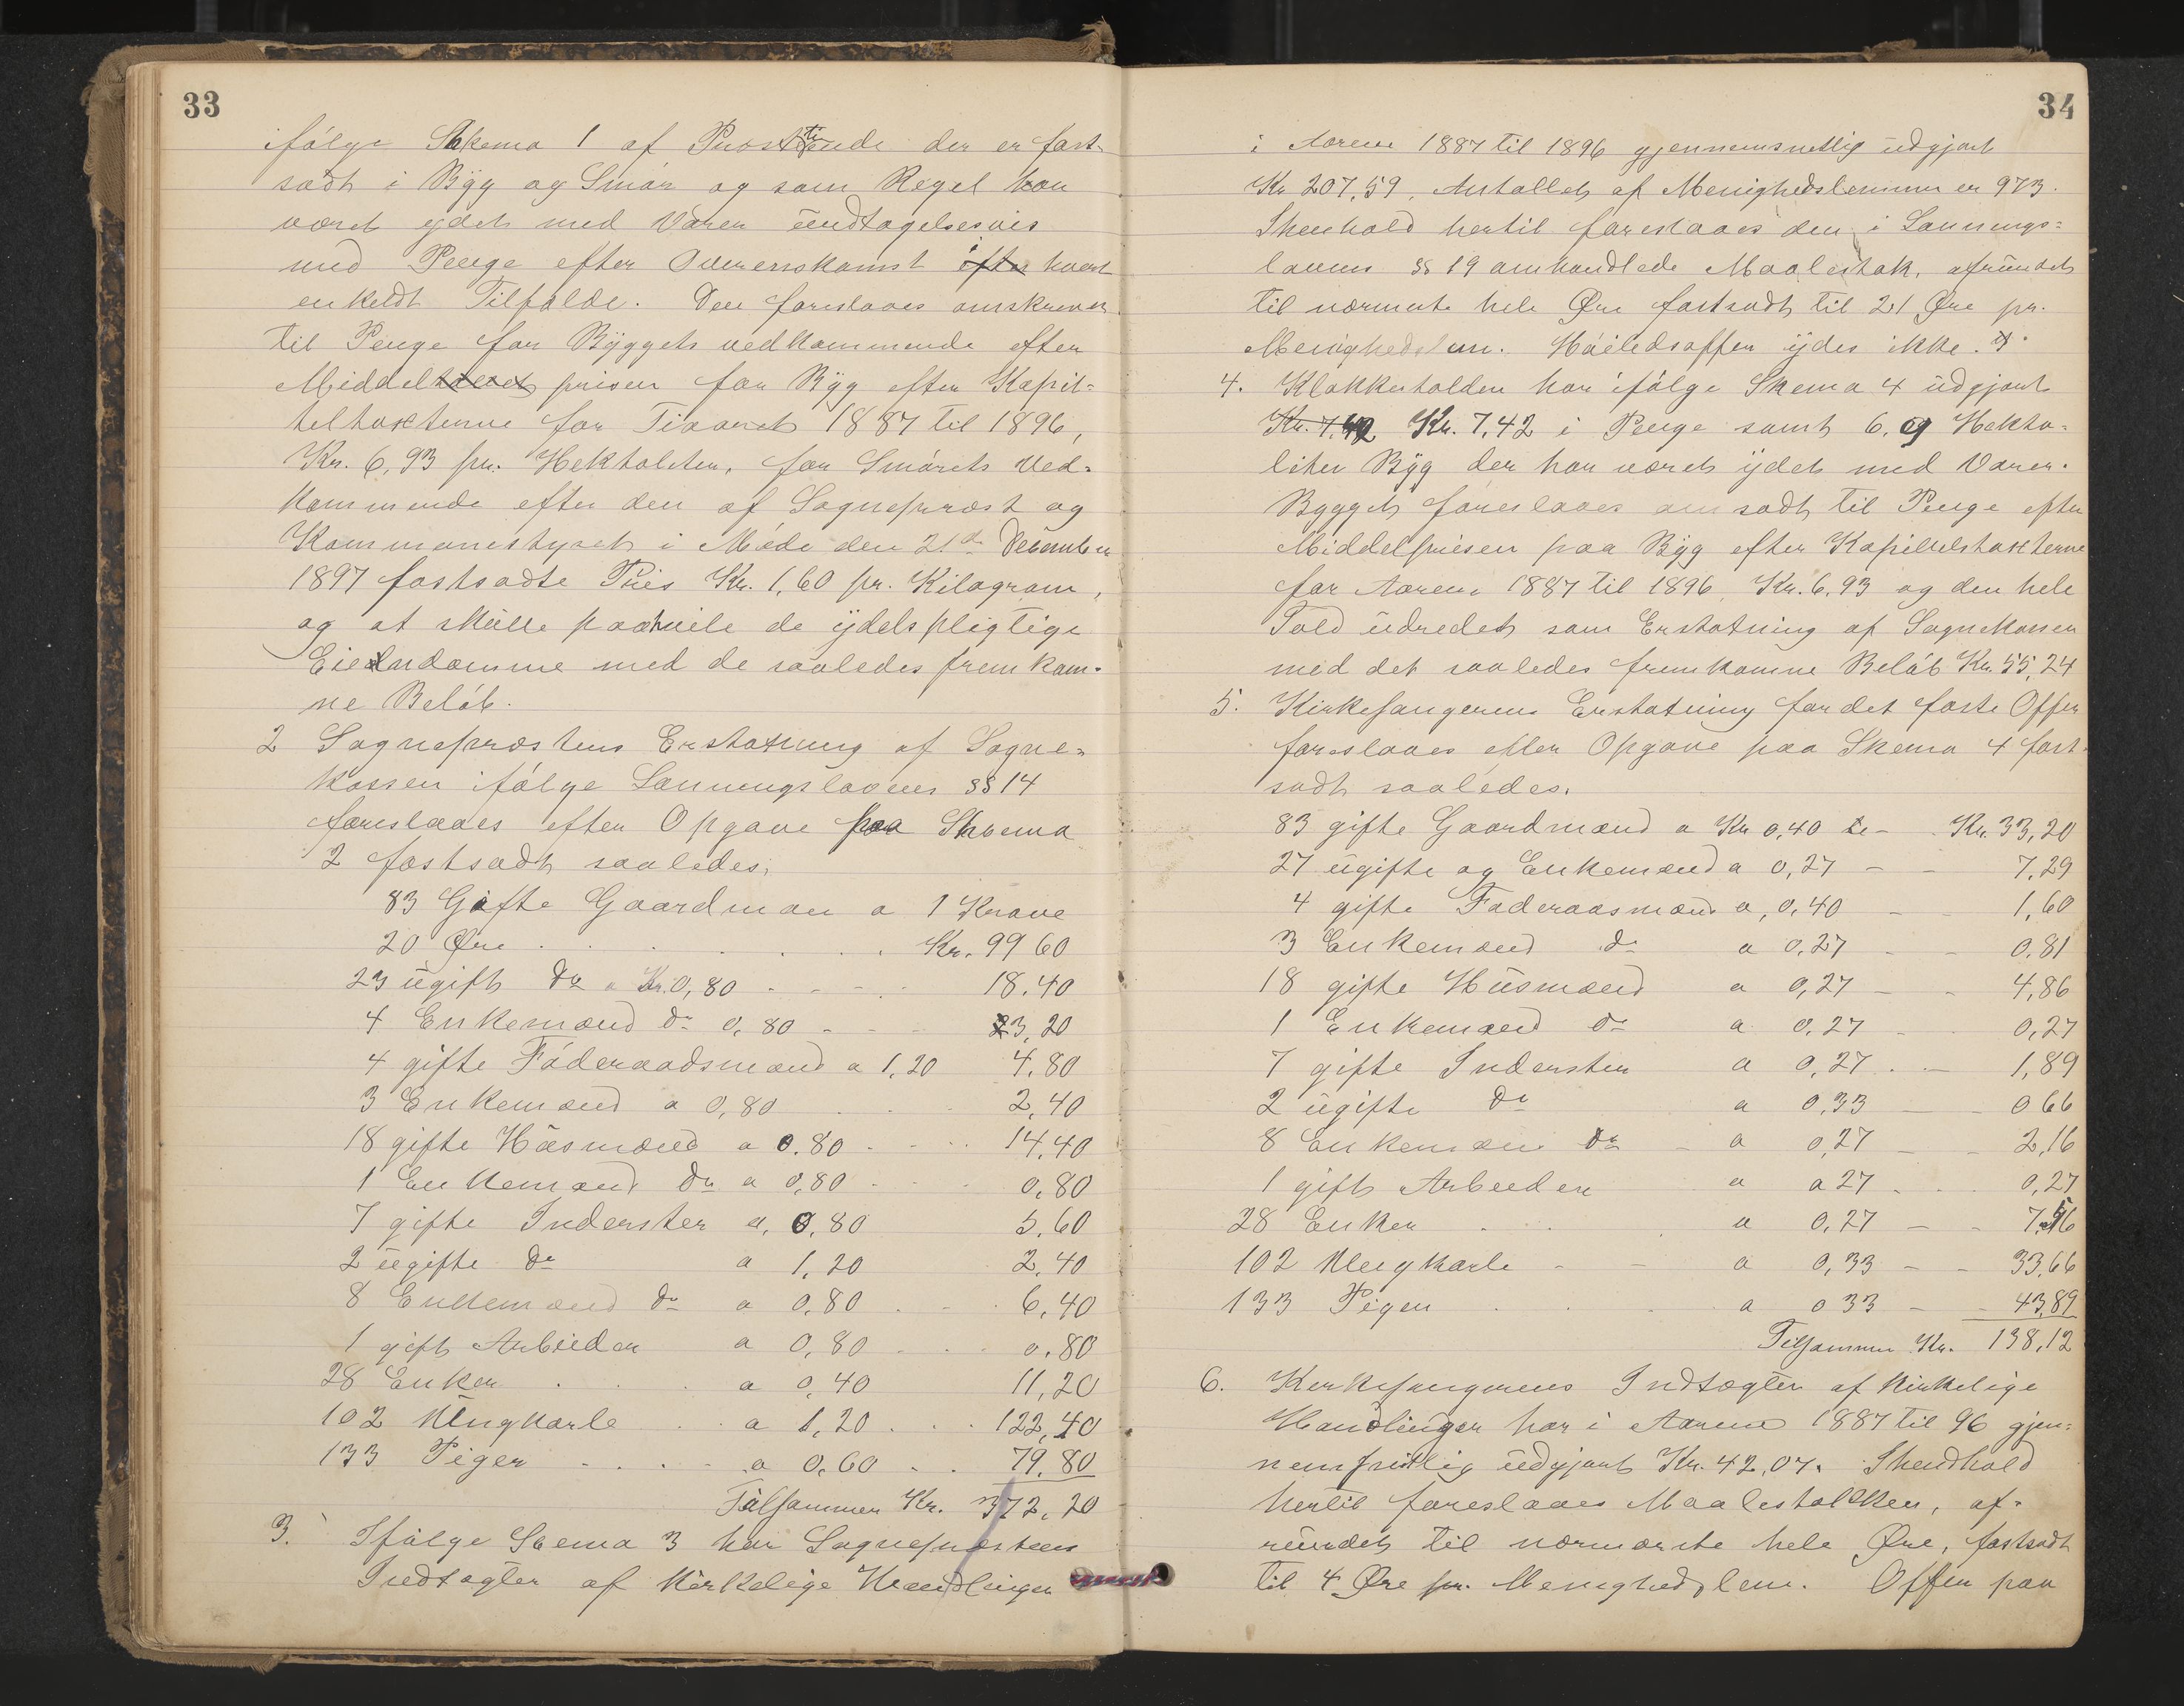 33
ifølge Skema 1 af Præstetiende der er fast-
sadt i Byg og Smør og som Regel har
været ydet med Varer undtagelsesvis
med Penge efter Overenskomst i hvert
enkeldt Tilfælde. Den foreslaaes omskreven
til Penge for Byggets vedkommende efter
Middelprisen for Byg efter Kapit-
teltaxterne for Tiaaret 1887 til 1896,
Kr. 6,93 pr. Hektoliter, for Smørets Ved-
kommende efter den af Sognepræst og
Kommunestyret i Møde den 21de December
1897 fastsadte Priis Kr. 1,60 pr. Kilogram,
og at skulle paahvile de ydelspligtige
Eiendomme med de saaledes fremkom-
ne Beløb.
2 Sognepræstens Erstatning af Sogne-
kassen ifølge Lønningslovens §§ 14
foreslaaes efter Opgave paa Skema
2 fastsadt saaledes;
83 Gifte Gaardmæn a 1 Krone
20 Øre . . . . . . Kr. 99 60
23 ugift do a Kr. 0,80 - - - 18.40
4 Enkemænd do 0,80 - - - 3,20
4 gifte Føderaadsmænd a 1,20 4,80
3 Enkemænd a 0,80 . . . 2,40
18 gifte Husmænd a 0.80 - - . 14,40
1 Enkemand do a 0,80 - - . 0,80
7 gifte Inderster a, 0,80 5,60
2 ugifte do a 1,20 2,40
8 Enkemænd do a 0,80 . . . 6,40
1 gift Arbeider a 0,80 . . . 0.80
28 Enker . . . a 0,40 11,20
102 Ungkarle . . a 1,20 . . . 122,40
133 Piger - . . - . a 0,60 . . 79,80
Tilsammen Kr. 372,20
3. Ifølge Scema 3 har Sognepræsten
Indtægter af Kirkelige Handlinger
34
i Aarene 1887 til 1896 gjennemsnitlig udgjort
Kr 207,59, Antallet af Menighedslemmer er 973.
Ihenhold hertil foreslaaes den i Lønnings=
lovens §§ 19 omhandlede Maalestok, afrundet
til nærmeste hele Øre fastsadt til 21 Øre pr.
Menighedslem. Høitedsoffer ydes ikke.
4. Klokkertolden har ifølge Skema 4 udgjort
Kr. 7,42 Kr. 7,42 i Penge samt 6,9 Hekto-
liter Byg der har været ydet med Varer.
Bygget foreslaaes omsadt til Penge efter
Middelpriesen paa Byg efter Kapitelstaxterne
for Aarene 1887 til 1896, Kr. 6,93 og den hele
Told udredet som Erstatning af Sognekassen
med det saaledes fremkomne Beløb Kr. 55,24
5. Kirkesangerens Erstatning for det faste Offer
foreslaaes efter Opgave paa Skema 4 fast-
sadt saaledes.
83 gifte Gaardmænd a Kr 0,40 - . Kr. 33,20
27 ugifte og Enkemænd a 0,27 - - 7,29
4 gifte Føderaasmænd a, 0,40 - - 1,60
3 Enkemænd do a 0,27 - - 0,81
18 gifte Husmænd a 0,27 - - 4,86
1 Enkemænd do a 0,27 - . 0,27
7 gifte Inderster a 0,27 . - 1,89
2 ugifte do a 0,33 - - 0 66
8 Enkemæn do - a 0,27 - - 2,16
1 gift Arbeider a a 27 . . . 0,27
28 Enker . . . a 0,27 - - 7,56
102 Ungkarle - - a 0,33 - - 33,66
133 Piger . . . a 0 33 - - 43,89
Tilsammen Kr. 138,12
6. Kirkesangerens Indtægter af kirkelige
Handlinger har i Aarene 1887 til 96 gjen-
nemsnitlig udgjort Kr. 42,07. Ihendhold
hertil foreslaaes Maalestokken, af-
rundet til nærmæste hele Øre, fastsadt
til 4 Øre pr. Menighedslem. Offer paa